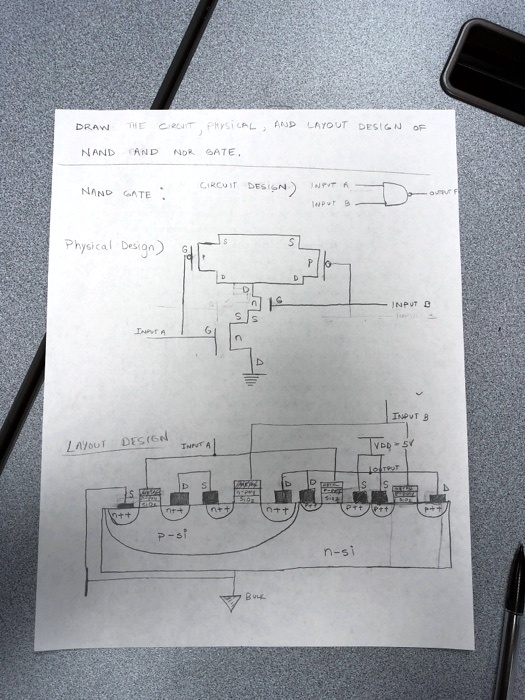 DRAW THE CIRCUIT, PHYSICAL, AND LAYOUT DESIGN OF
NAND AND NOR GATE.
NAND GATE: CIRCUIT DESIGN) INPUT A
INPUT B
OUTPUT F
Physical Design)
S S
G P P
D D
D
n G INPUT B
S S
INPUT A G n
D
INPUT B
LAYOUT DESIGN INPUT A VDD = 5V
OUTPUT
S D S D D S S D
METAL
SiO2
n++ n++ n++ n++ P++ P++ P++
p-si
n-si
BULK